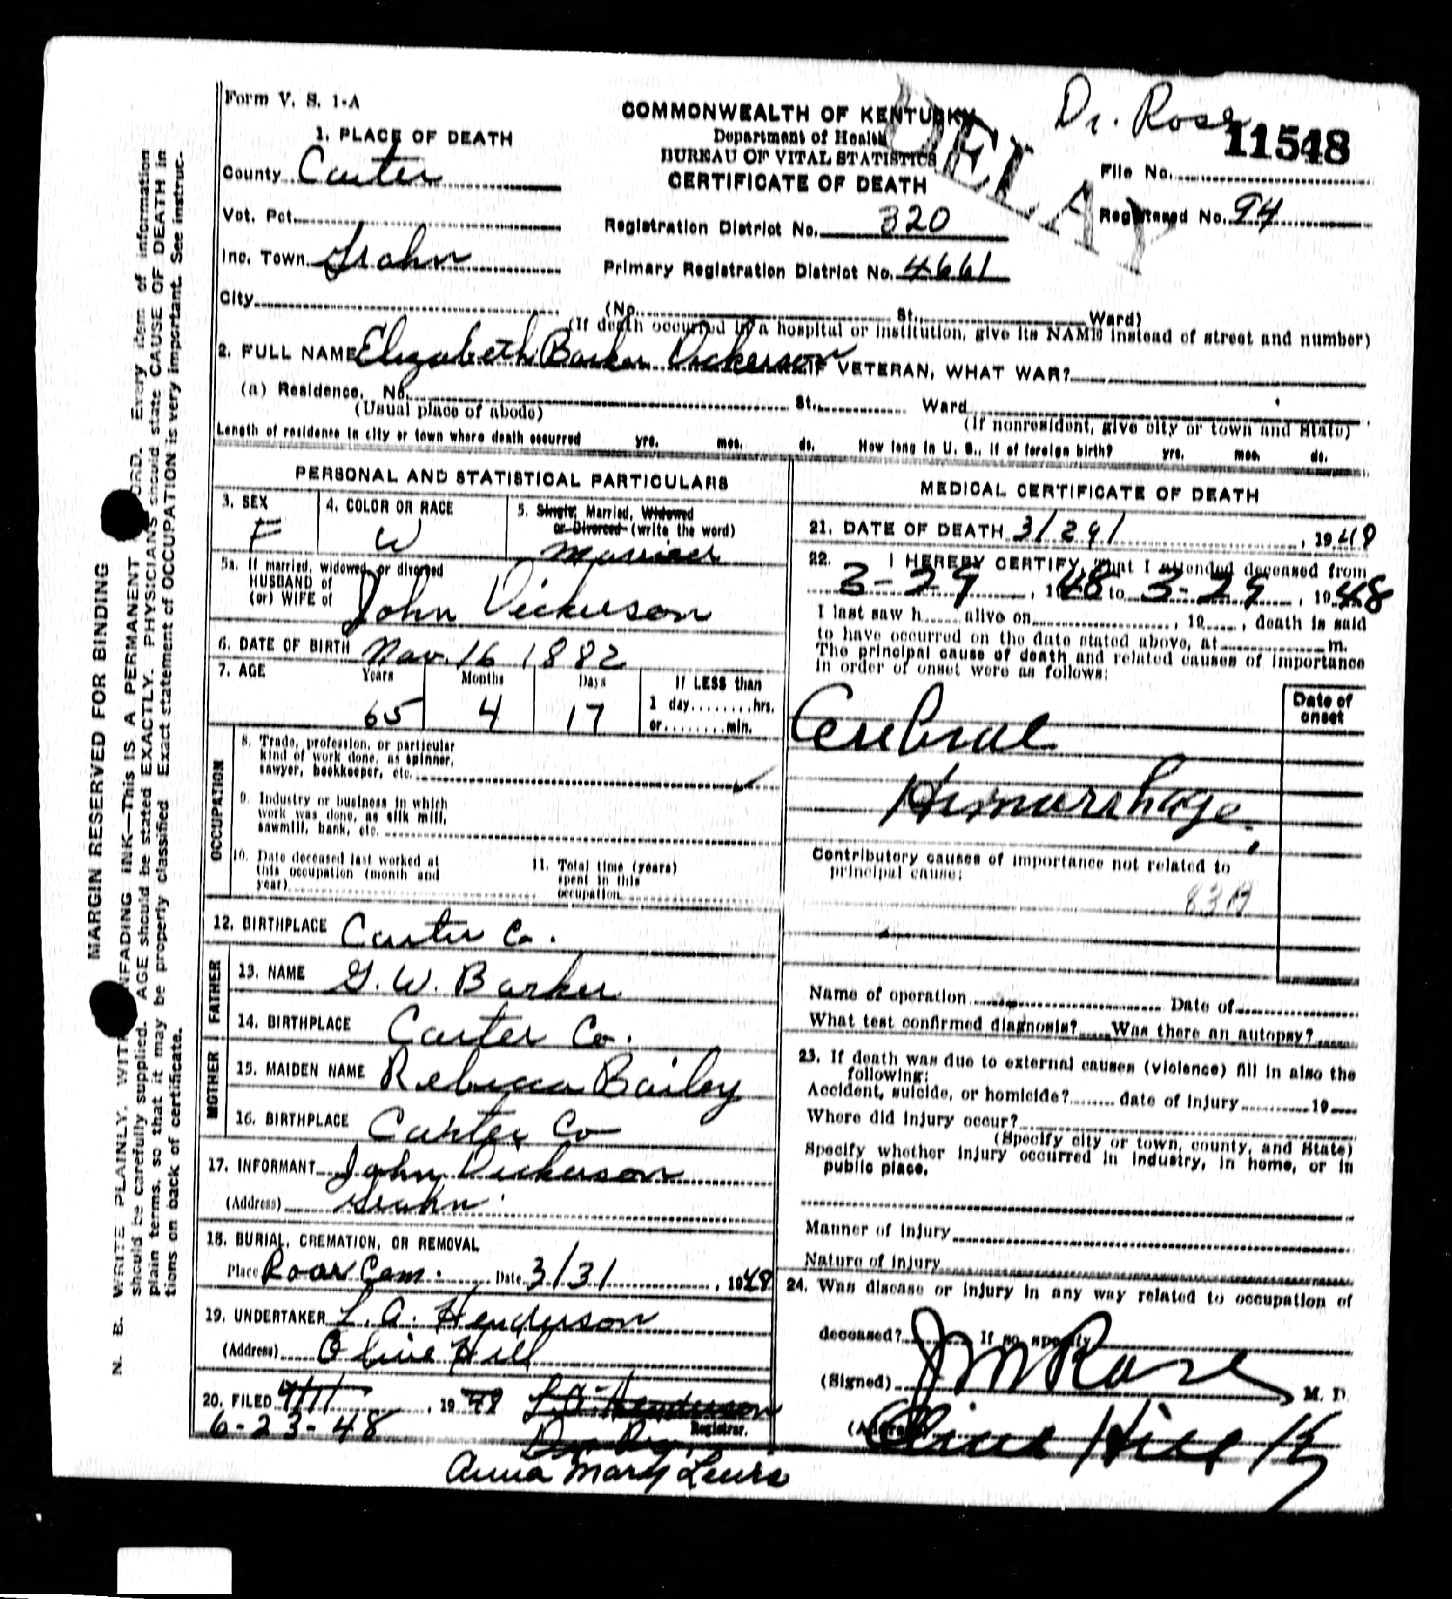 Form V. S. 1-A
COMMONWEALTH OF KENTUCKY
Department of Health
BUREAU OF VITAL STATISTICS
CERTIFICATE OF DEATH
DELAY
Dr. Rose
11548
File No.
Registered No. 94
Registration District No. 320
Primary Registration District No. 4661
1. PLACE OF DEATH
County Carter
Vot. Pct.
Inc. Town Grahn
City
(No. St. Ward)
(If death occurred in a hospital or institution, give its NAME instead of street and number)
2. FULL NAME Elizabeth Barker Dickerson IF VETERAN, WHAT WAR?
(a) Residence. No. St. Ward
(Usual place of abode) (If nonresident, give city or town and State)
Length of residence in city or town where death occurred yrs. mos. ds. How long in U. S., if of foreign birth? yrs. mos. ds.
PERSONAL AND STATISTICAL PARTICULARS
3. SEX F
4. COLOR OR RACE W
5. Single, Married, Widowed
or Divorced (write the word)
married
5a. If married, widowed, or divorced
HUSBAND of
(or) WIFE of John Dickerson
6. DATE OF BIRTH Nov. 16 1882
7. AGE Years Months Days If LESS than
1 day........hrs.
or........min.
65 4 17
OCCUPATION
8. Trade, profession, or particular
kind of work done, as spinner,
sawyer, bookkeeper, etc.
9. Industry or business in which
work was done, as silk mill,
sawmill, bank, etc.
10. Date deceased last worked at
this occupation (month and
year)
11. Total time (years)
spent in this
occupation
12. BIRTHPLACE Carter Co.
FATHER
13. NAME G. W. Barker
14. BIRTHPLACE Carter Co.
MOTHER
15. MAIDEN NAME Rebecca Bailey
16. BIRTHPLACE Carter Co
17. INFORMANT John Dickerson
(Address) Grahn
18. BURIAL, CREMATION, OR REMOVAL
Place Roar Cem. Date 3/31, 1948
19. UNDERTAKER L. A. Henderson
(Address) Olive Hill
20. FILED , 19 L. A. Henderson
6-23-48 Registrar.
Anna Mary Lewis
MEDICAL CERTIFICATE OF DEATH
21. DATE OF DEATH 3/29/, 1948
22. I HEREBY CERTIFY, That I attended deceased from
3-29, 1948 to 3-29, 1948
I last saw h...... alive on, 19...., death is said
to have occurred on the date stated above, at m.
The principal cause of death and related causes of importance
in order of onset were as follows:
Date of
onset
Cerebral
Hemorrhage.
Contributory causes of importance not related to
principal cause:
Name of operation Date of
What test confirmed diagnosis? Was there an autopsy?
23. If death was due to external causes (violence) fill in also the
following:
Accident, suicide, or homicide? date of injury 19
Where did injury occur?
(Specify city or town, county, and State)
Specify whether injury occurred in industry, in home, or in
public place.
Manner of injury
Nature of injury
24. Was disease or injury in any way related to occupation of
deceased? If so, specify
(Signed) J M Rose M. D.
(Address) Olive Hill Ky
MARGIN RESERVED FOR BINDING
N. B. WRITE PLAINLY, WITH UNFADING INK—THIS IS A PERMANENT RECORD. Every item of information
should be carefully supplied. AGE should be stated EXACTLY. PHYSICIANS should state CAUSE OF DEATH in
plain terms, so that it may be properly classified. Exact statement of OCCUPATION is very important. See instruc-
tions on back of certificate.